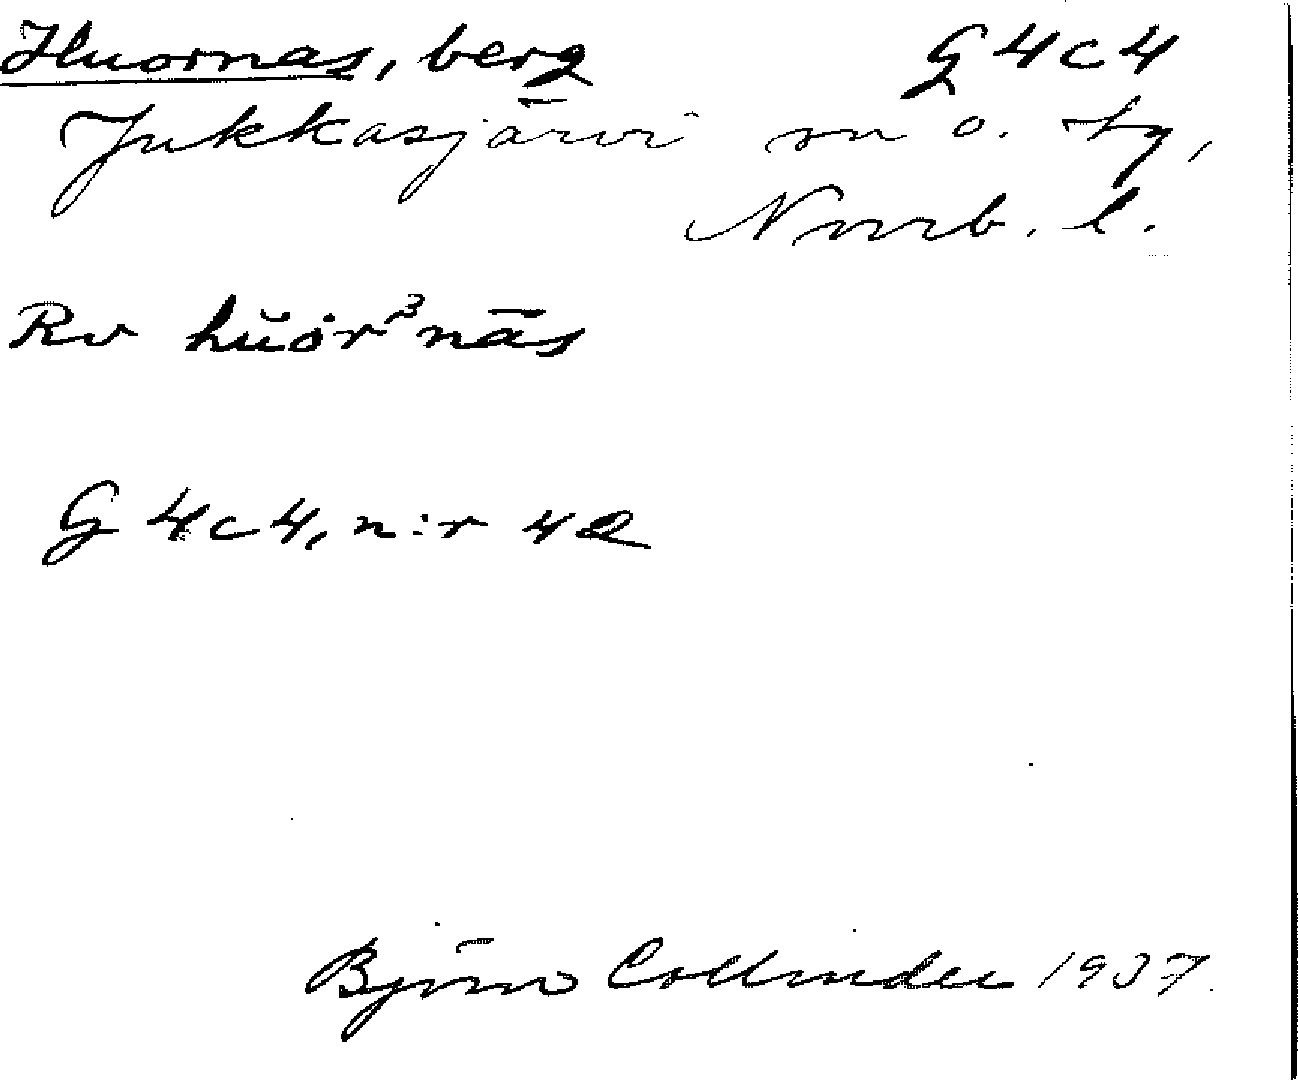 Huornas, berg G 4 c 4
Jukkasjärvi sn o. tg,
Norrb. l.
Rv hŭȯr³nās
G 4 c 4, n:r 42
Björn Collinder 1937.